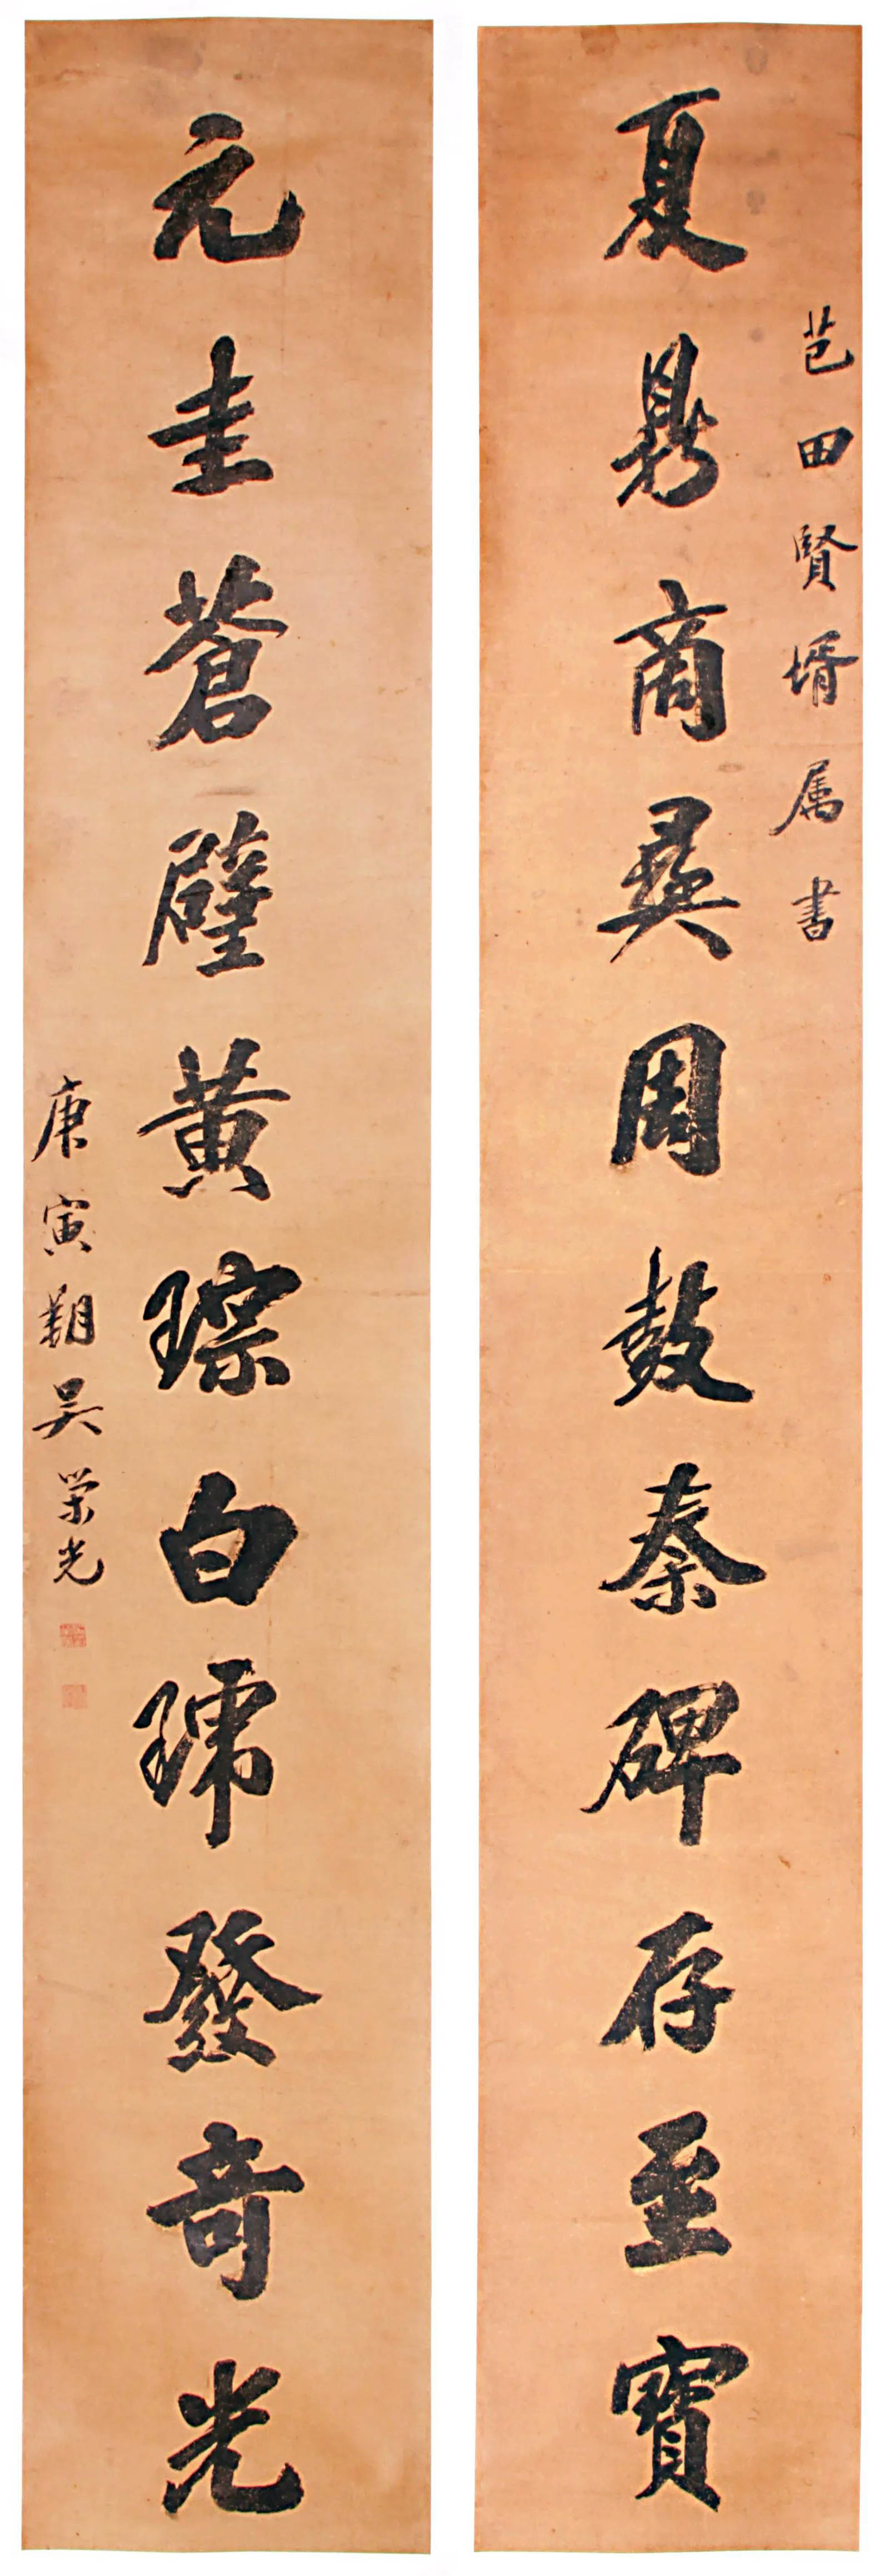 芑田賢壻属書
夏鼎商彝周敦秦碑存至寶
元圭蒼璧黃琮白琥發奇光
庚寅朝吳榮光